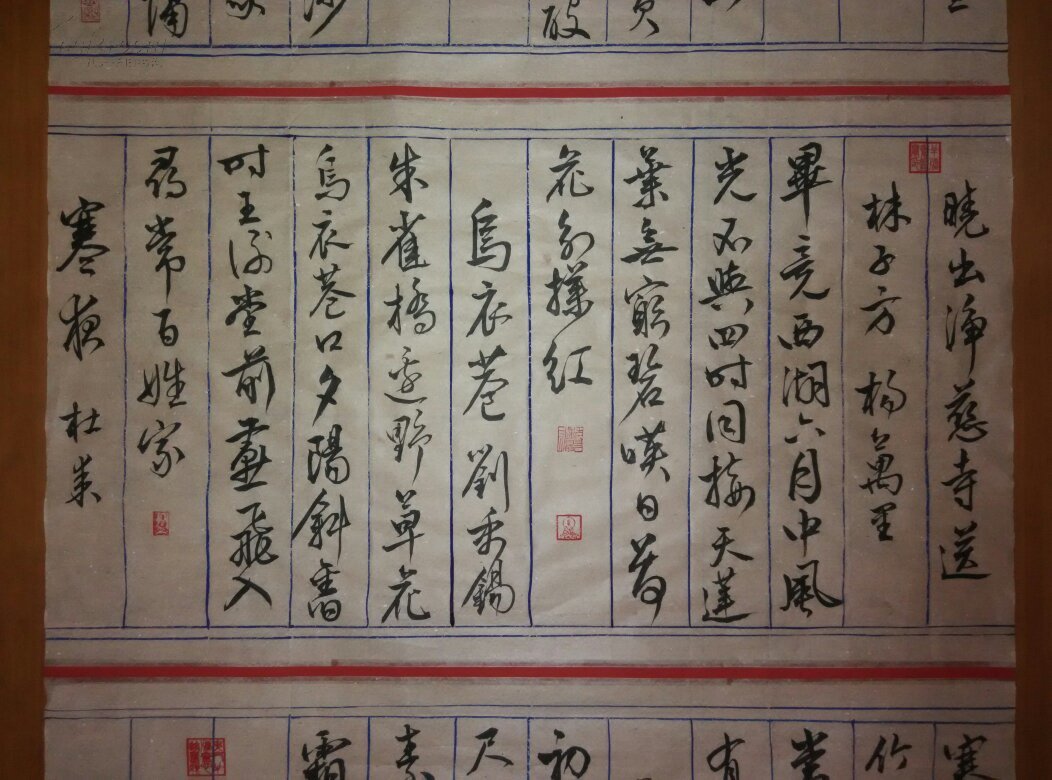 酸
沙
曉出淨慈寺送
林子方 楊萬里
畢竟西湖六月中風
光不與四时同接天蓮
葉無窮碧暎日荷
花別樣紅
烏衣巷 劉禹錫
朱雀橋邊野草花
烏衣巷口夕陽斜舊
时王謝堂前燕飛入
尋常百姓家
寒夜 杜耒
寒
竹
有
初
尺
素
霜